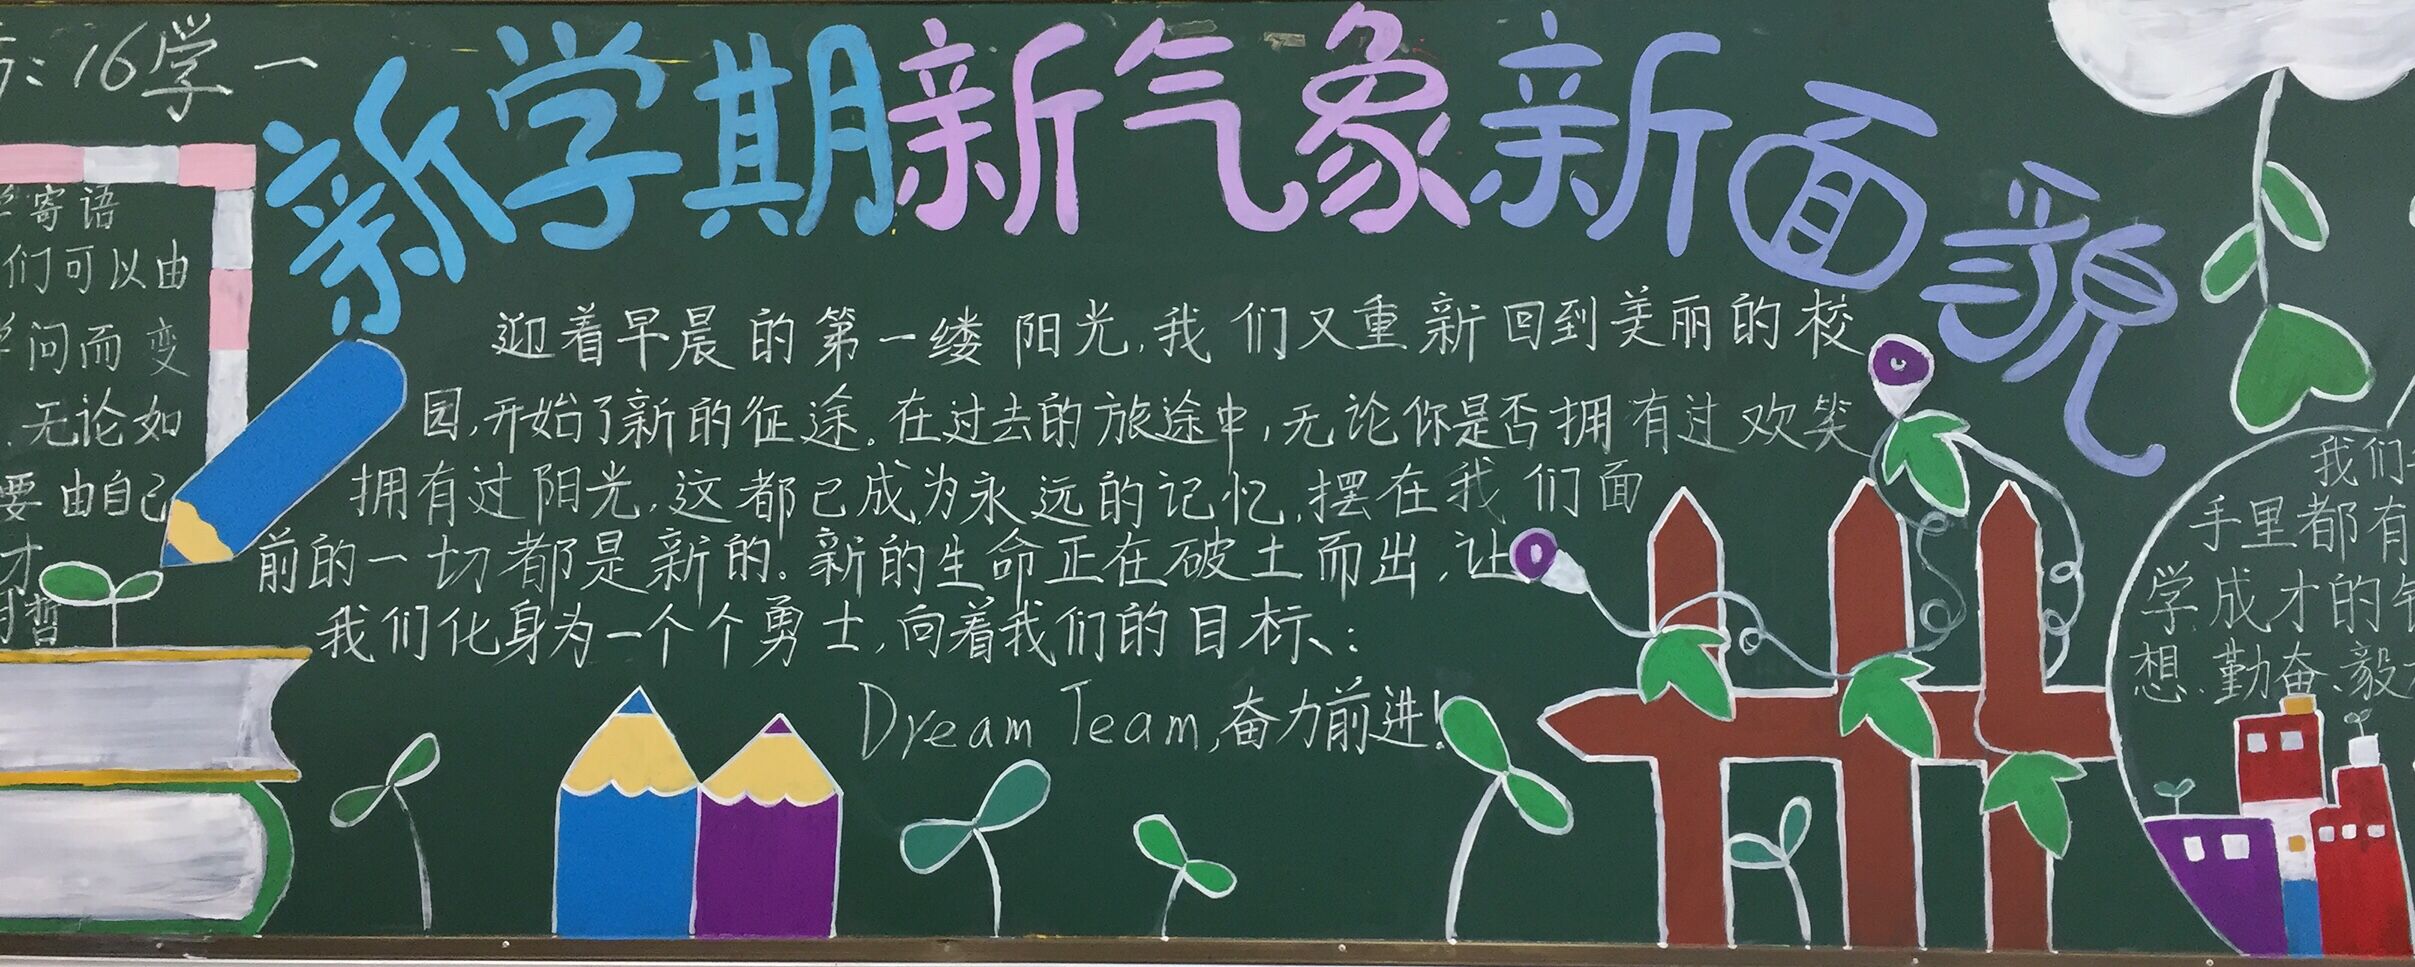 ：16学一
新学期新气象新面貌
寄语
们可以由
问而变
无论如
要由自己
才
哲
迎着早晨的第一缕阳光,我们又重新回到美丽的校
园,开始了新的征途。在过去的旅途中,无论你是否拥有过欢笑
拥有过阳光,这都已成为永远的记忆,摆在我们面
前的一切都是新的。新的生命正在破土而出,让
我们化身为一个个勇士,向着我们的目标、:
Dream Team,奋力前进!
我们
手里都有
学成才的
想、勤奋、毅